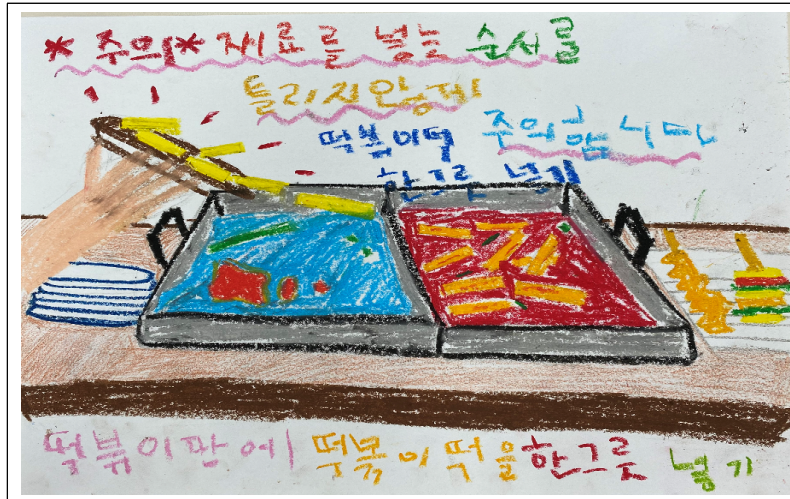 *주의* 재료를 넣는 순서를
틀리지않게
주의합니다
떡볶이떡
한그릇 넣기
떡볶이판에 떡볶이떡을 한그릇 넣기